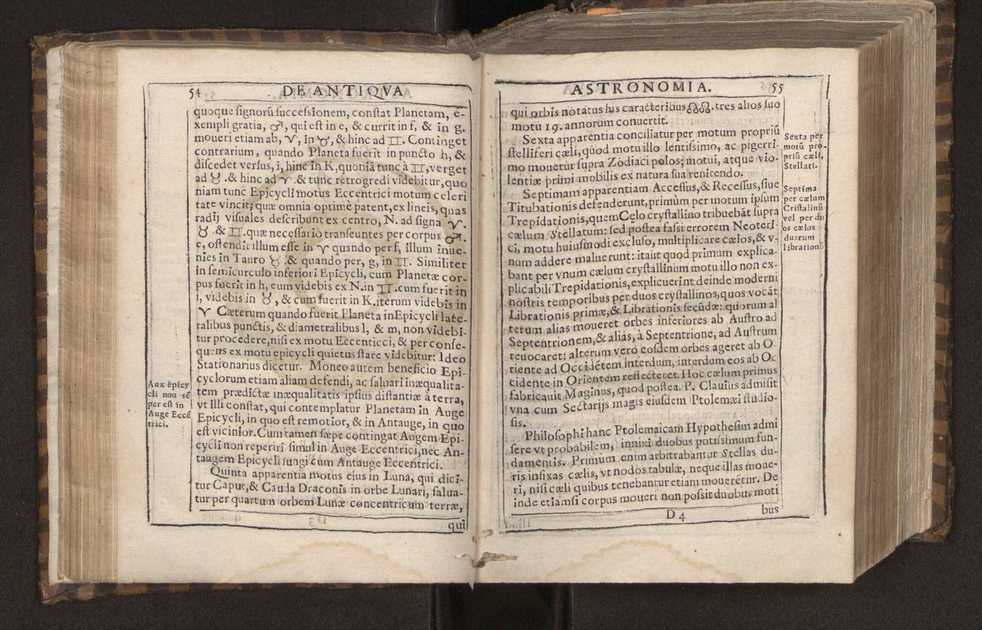 54 DE ANTIQVA
quoque signorū successionem, constat Planetam, e-
xempli gratia, ♂, qui est in e, & currit in f, & in g.
moueri etiam ab, ♈, in ♉, & hinc ad ♊. Continget
contrarium, quando Planeta fuerit in puncto h, &
discedet versus, i, hinc in K, quoniā tunc à ♊, verget
ad ♉. & hinc ad ♈. & tunc retrogredi videbitur, quo
niam tunc Epicycli motus Eccentrici motum celeri
tate vincit; quæ omnia optimè patent, ex lineis, quas
radij visuales describunt ex centro, N. ad signa ♈.
♉. & ♊. quæ necessario transeuntes per corpus ♂.
e, ostendit illum esse in ♈ quando per f, illum inue-
nies in Tauro ♉. & quando per, g, in ♊. Similiter
in semicirculo inferiori Epicycli, cum Planetæ cor-
pus fuerit in h, eum videbis ex N. in ♊. cum fuerit in
i, videbis in ♉, & cum fuerit in K. iterum videbis in
♈ Cæterum quando fuerit Planeta in Epicycli late-
ralibus punctis, & diametralibus l, & m, non videbi-
tur procedere, nisi ex motu Eccenticci, & per conse-
quens ex motu epicycli quietus stare videbitur: Ideo
Stationarius dicetur. Moneo autem beneficio Epi-
cyclorum etiam aliam defendi, ac saluari inæqualita-
tem prædictæ inæqualitatis ipsius distantiæ à terra,
vt illi constat, qui contemplatur Planetam in Auge
Epicycli, in quo est remotior, & in Antauge, in quo
est vicinior. Cum tamen sæpe contingat Augem Epi-
cycli non reperiri simul in Auge Eccentrici, nec An-
taugem Epicycli iungi cum Antauge Eccentrici.
Quinta apparentia motus eius in Luna, qui dici-
tur Caput, & Cauda Draconis in orbe Lunari, salua-
tur per quartum orbem Lunæ concentricum terræ,
qui
Aux epicy
cli non sē
per est in
Auge Eccē
trici.
ASTRONOMIA. 55
qui orbis notatus his caracteribus ☊☊. tres alios suo
motu 19. annorum conuertit.
Sexta apparentia conciliatur per motum propriū
stelliferi cæli, quod motu illo lentissimo, ac pigerri-
mo mouetur supra Zodiaci polos; motui, atque vio-
lentiæ primi mobilis ex natura sua renitendo.
Septimam apparentiam Accessus, & Recessus, siue
Titubationis defenderunt, primùm per motum ipsum
Trepidationis, quem Celo crystallino tribuebāt supra
cælum Stellatum: sed postea fassi errorem Neoteri-
ci, motu huiusmodi excluso, multiplicare cælos, & v-
num addere maluerunt: ita vt quod primum explica-
bant per vnum cælum crystallinum motu illo non ex-
plicabili Trepidationis, explicuerint deinde moderni
nostris temporibus per duos crystallinos, quos vocāt
Librationis primæ, & Librationis secūdæ: quorum al
terum alias moueret orbes inferiores ab Austro ad
Septentrionem, & alias, à Septentrione, ad Austrum
reuocaret: alterum verò eosdem orbes ageret ab O-
riente ad Occidētem interdum, interdum eos ab Oc
cidente in Orientem reflecteret. Hoc cælum primus
fabricauit Maginus, quod postea. P. Clauius admisit
vna cum Sectarijs magis eiusdem Ptolemæi studio-
sis.
Philosophi hanc Ptolemaicam Hypothesim admi
sere vt probabilem, innixi duobus potissimum fun-
damentis. Primum enim arbitrabantur Stellas du-
ris infixas cælis, vt nodos tabulæ, neque illas moue-
ri, nisi cæli quibus tenebantur etiam mouerētur. De
inde etiamsi corpus moueri non possit duobus moti
D 4 bus
Sexta per
motū pro-
priū cæli,
Stellati.
Septima
per cælum
Cristalinū
vel per du
os cælos
duarum
librationū